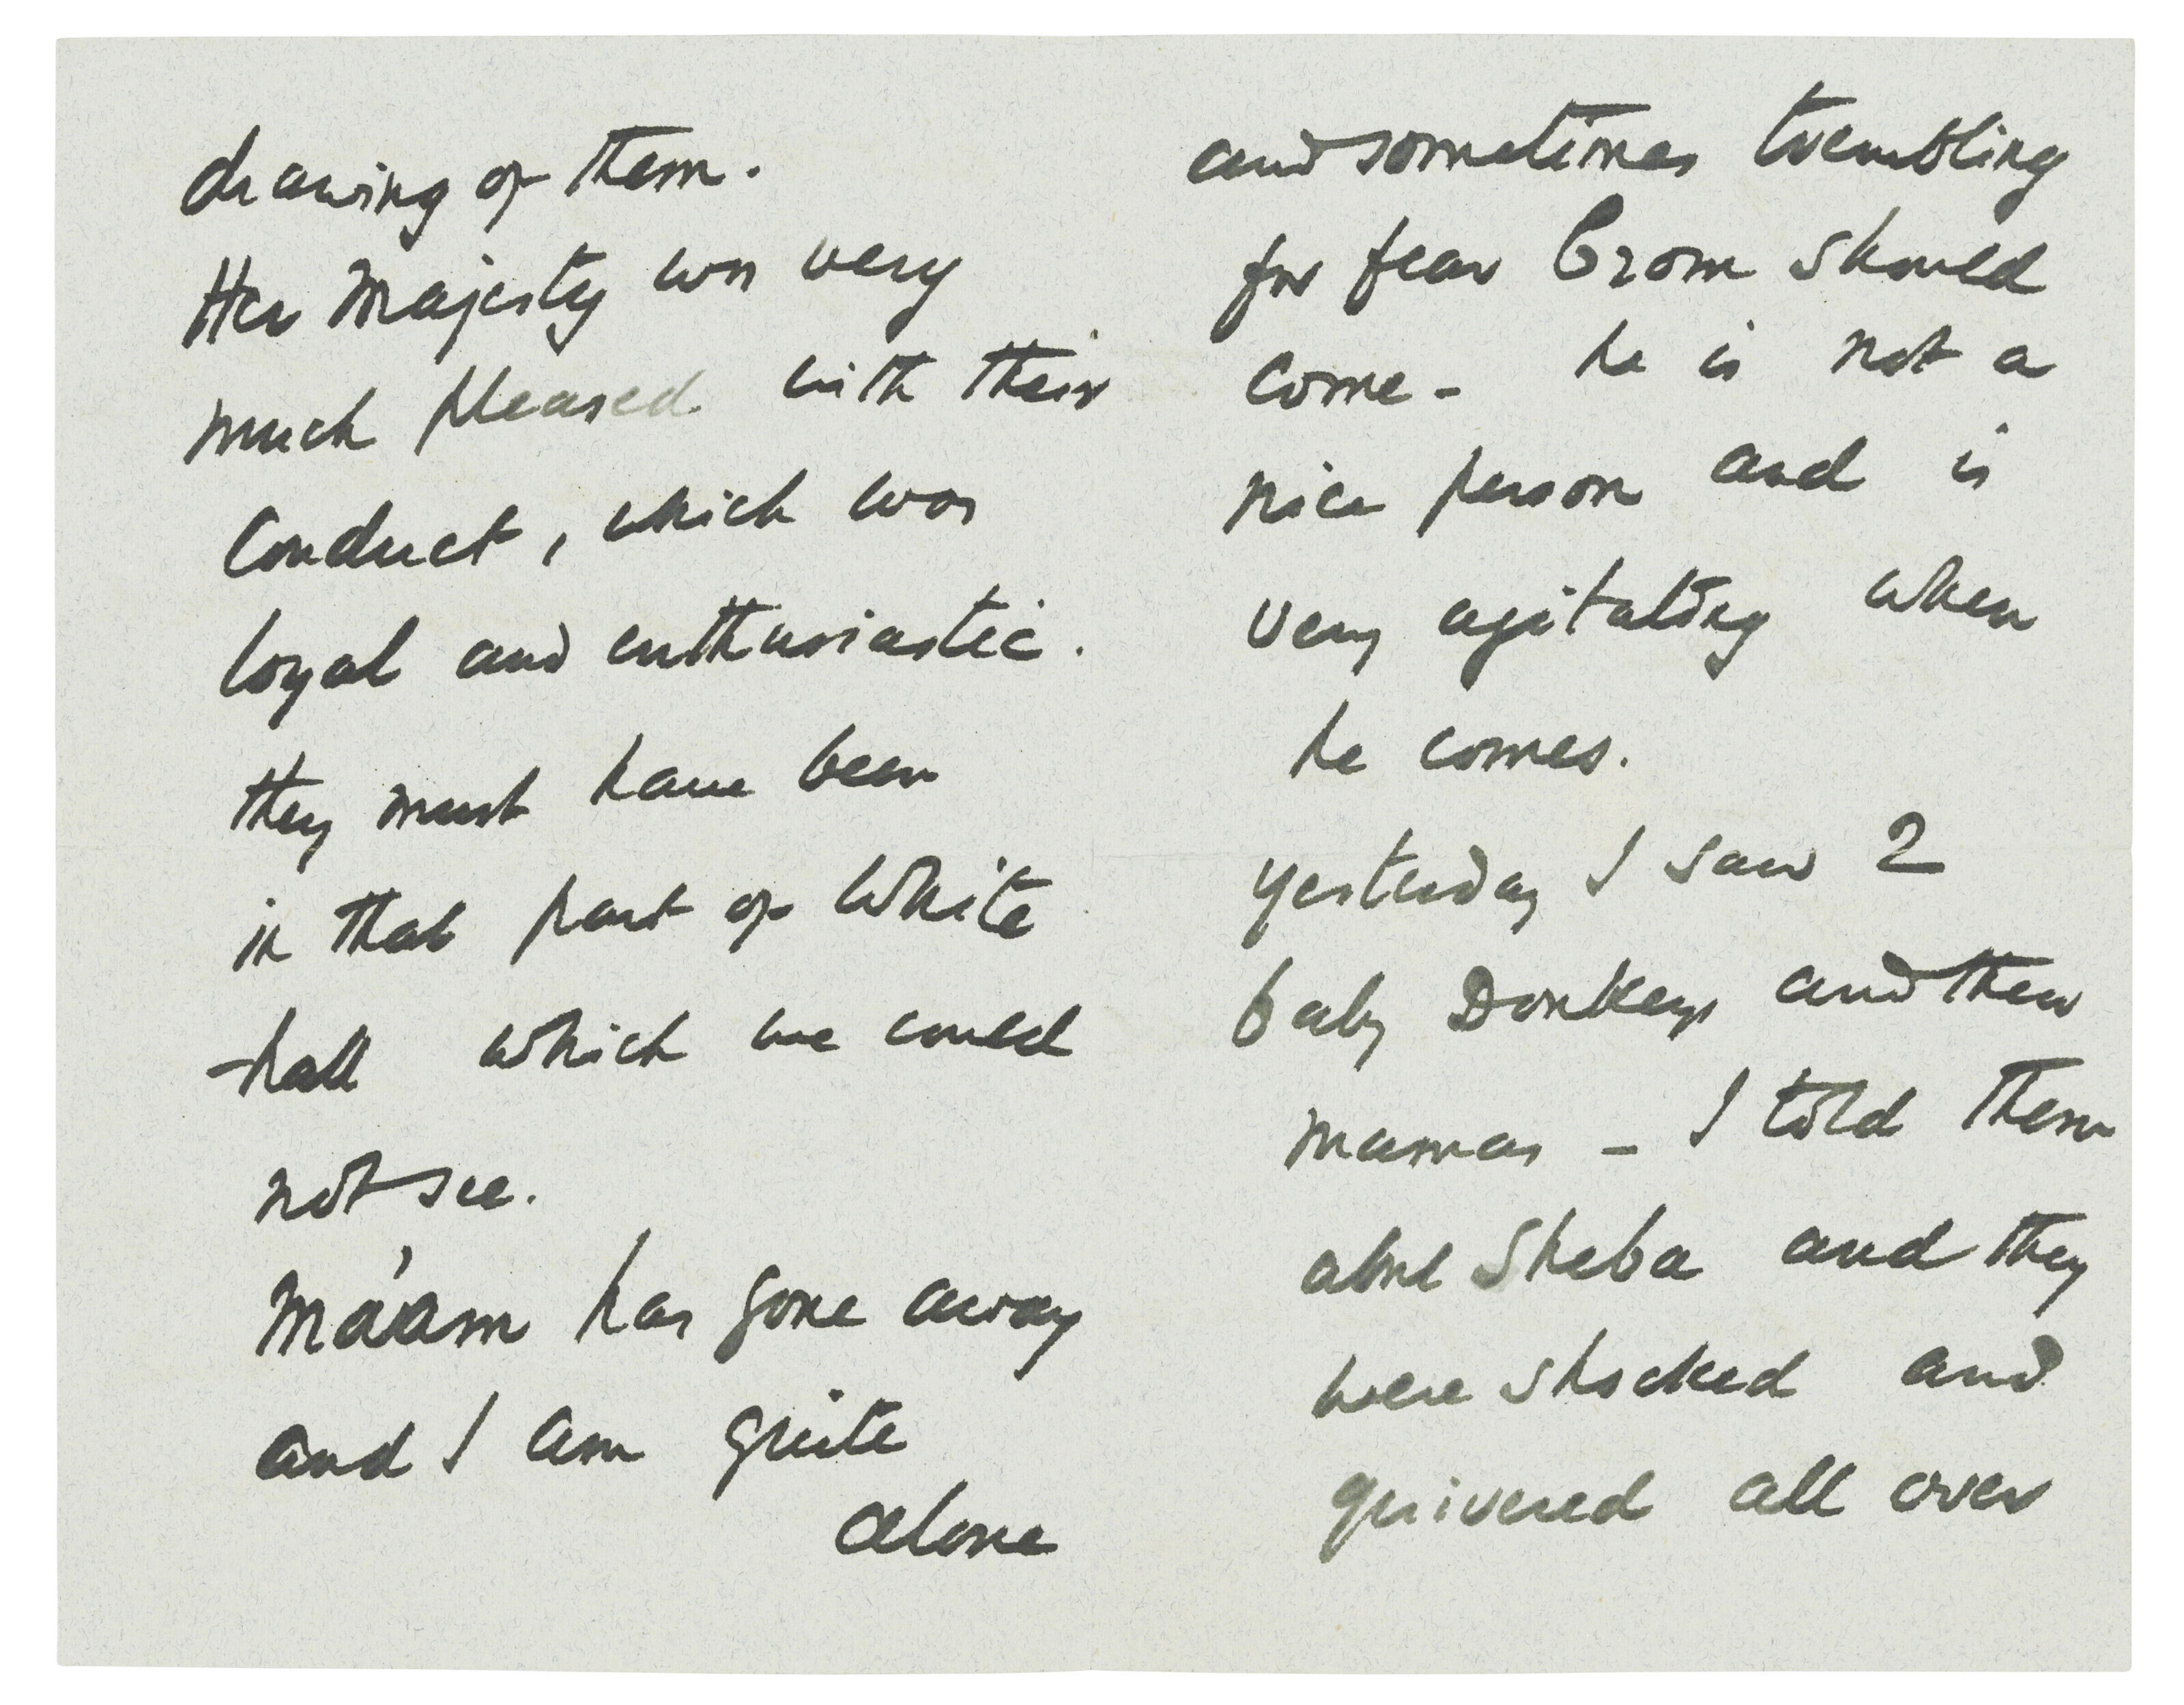 drawing of them.
Her Majesty was very
much pleased with their
Conduct, which was
loyal and enthusiastic.
they must have been
in that part of White
-hall which we could
not see.
Má'am has gone away
and I am quite
alone
and sometimes trembling
for fear Crom should
come - he is not a
nice person and is
very agitating when
he comes.
yesterday I saw 2
baby Donkeys and their
mamas - I told them
about Sheba and they
were shocked and
quivered all over